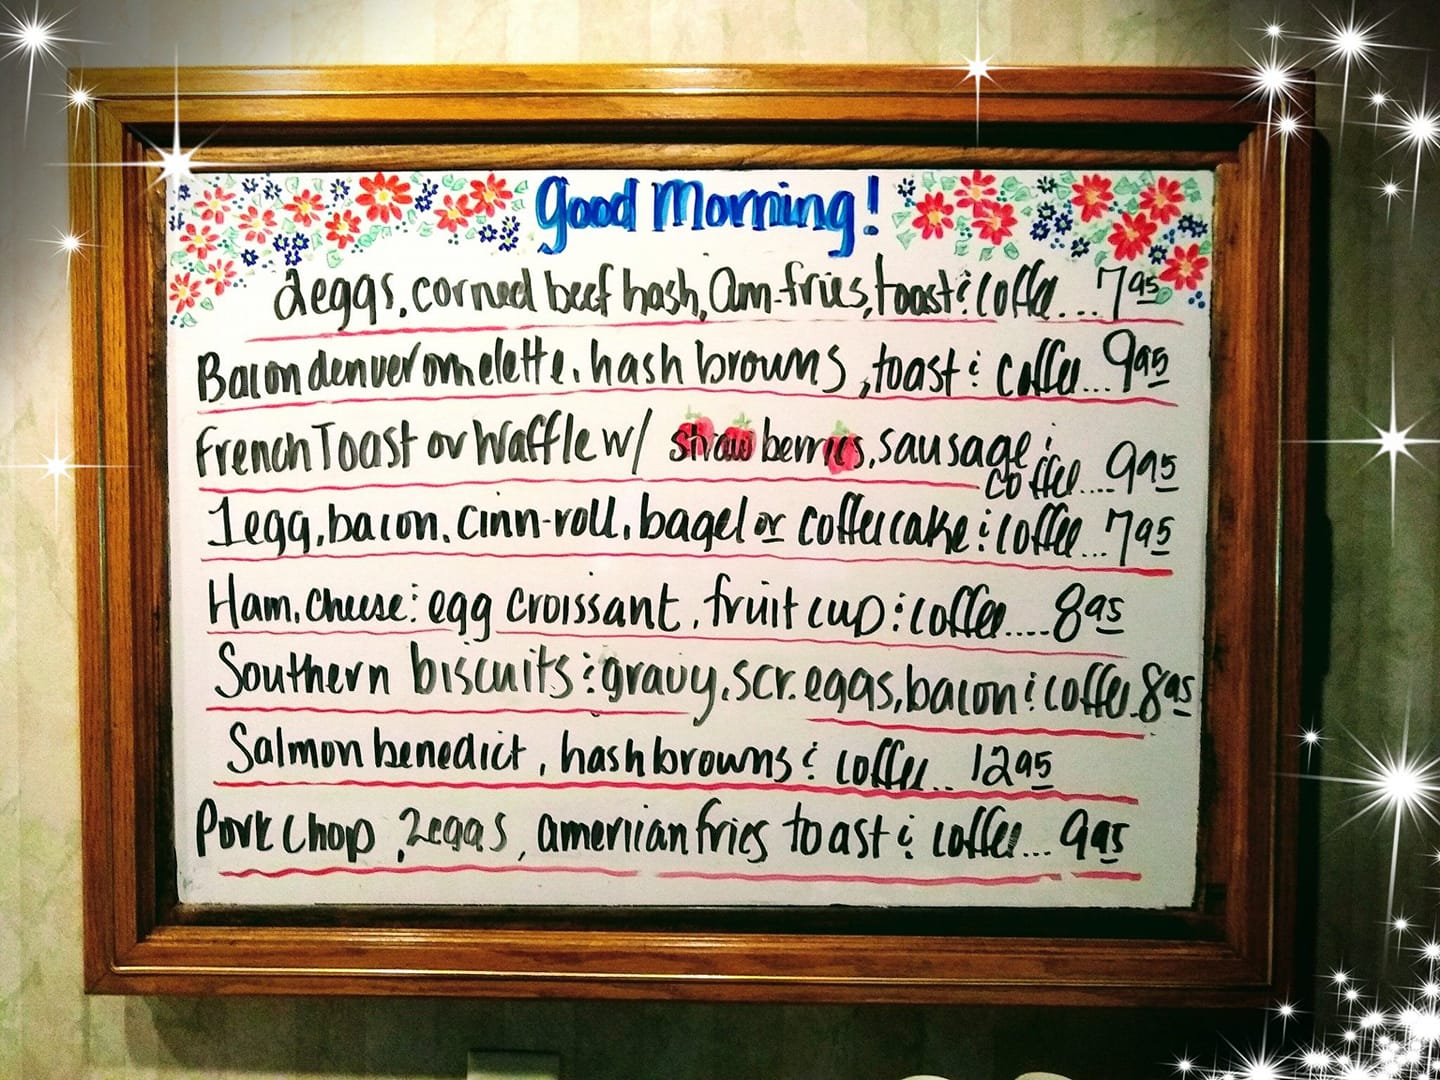 Good Morning!
2eggs, corned beef hash, Am-fries, toast & coffee... 7.95
Bacon denver omelette, hash browns, toast & coffee... 9.95
French Toast or Waffle w/ strawberries, sausage &
coffee.... 9.95
1egg, bacon, cinn-roll, bagel or coffeecake & coffee... 7.95
Ham, cheese & egg croissant, fruit cup & coffee.... 8.95
Southern biscuits & gravy, scr. eggs, bacon & coffee. 8.95
Salmon benedict, hashbrowns & coffee.. 12.95
Pork Chop, 2eggs, american fries toast & coffee... 9.95